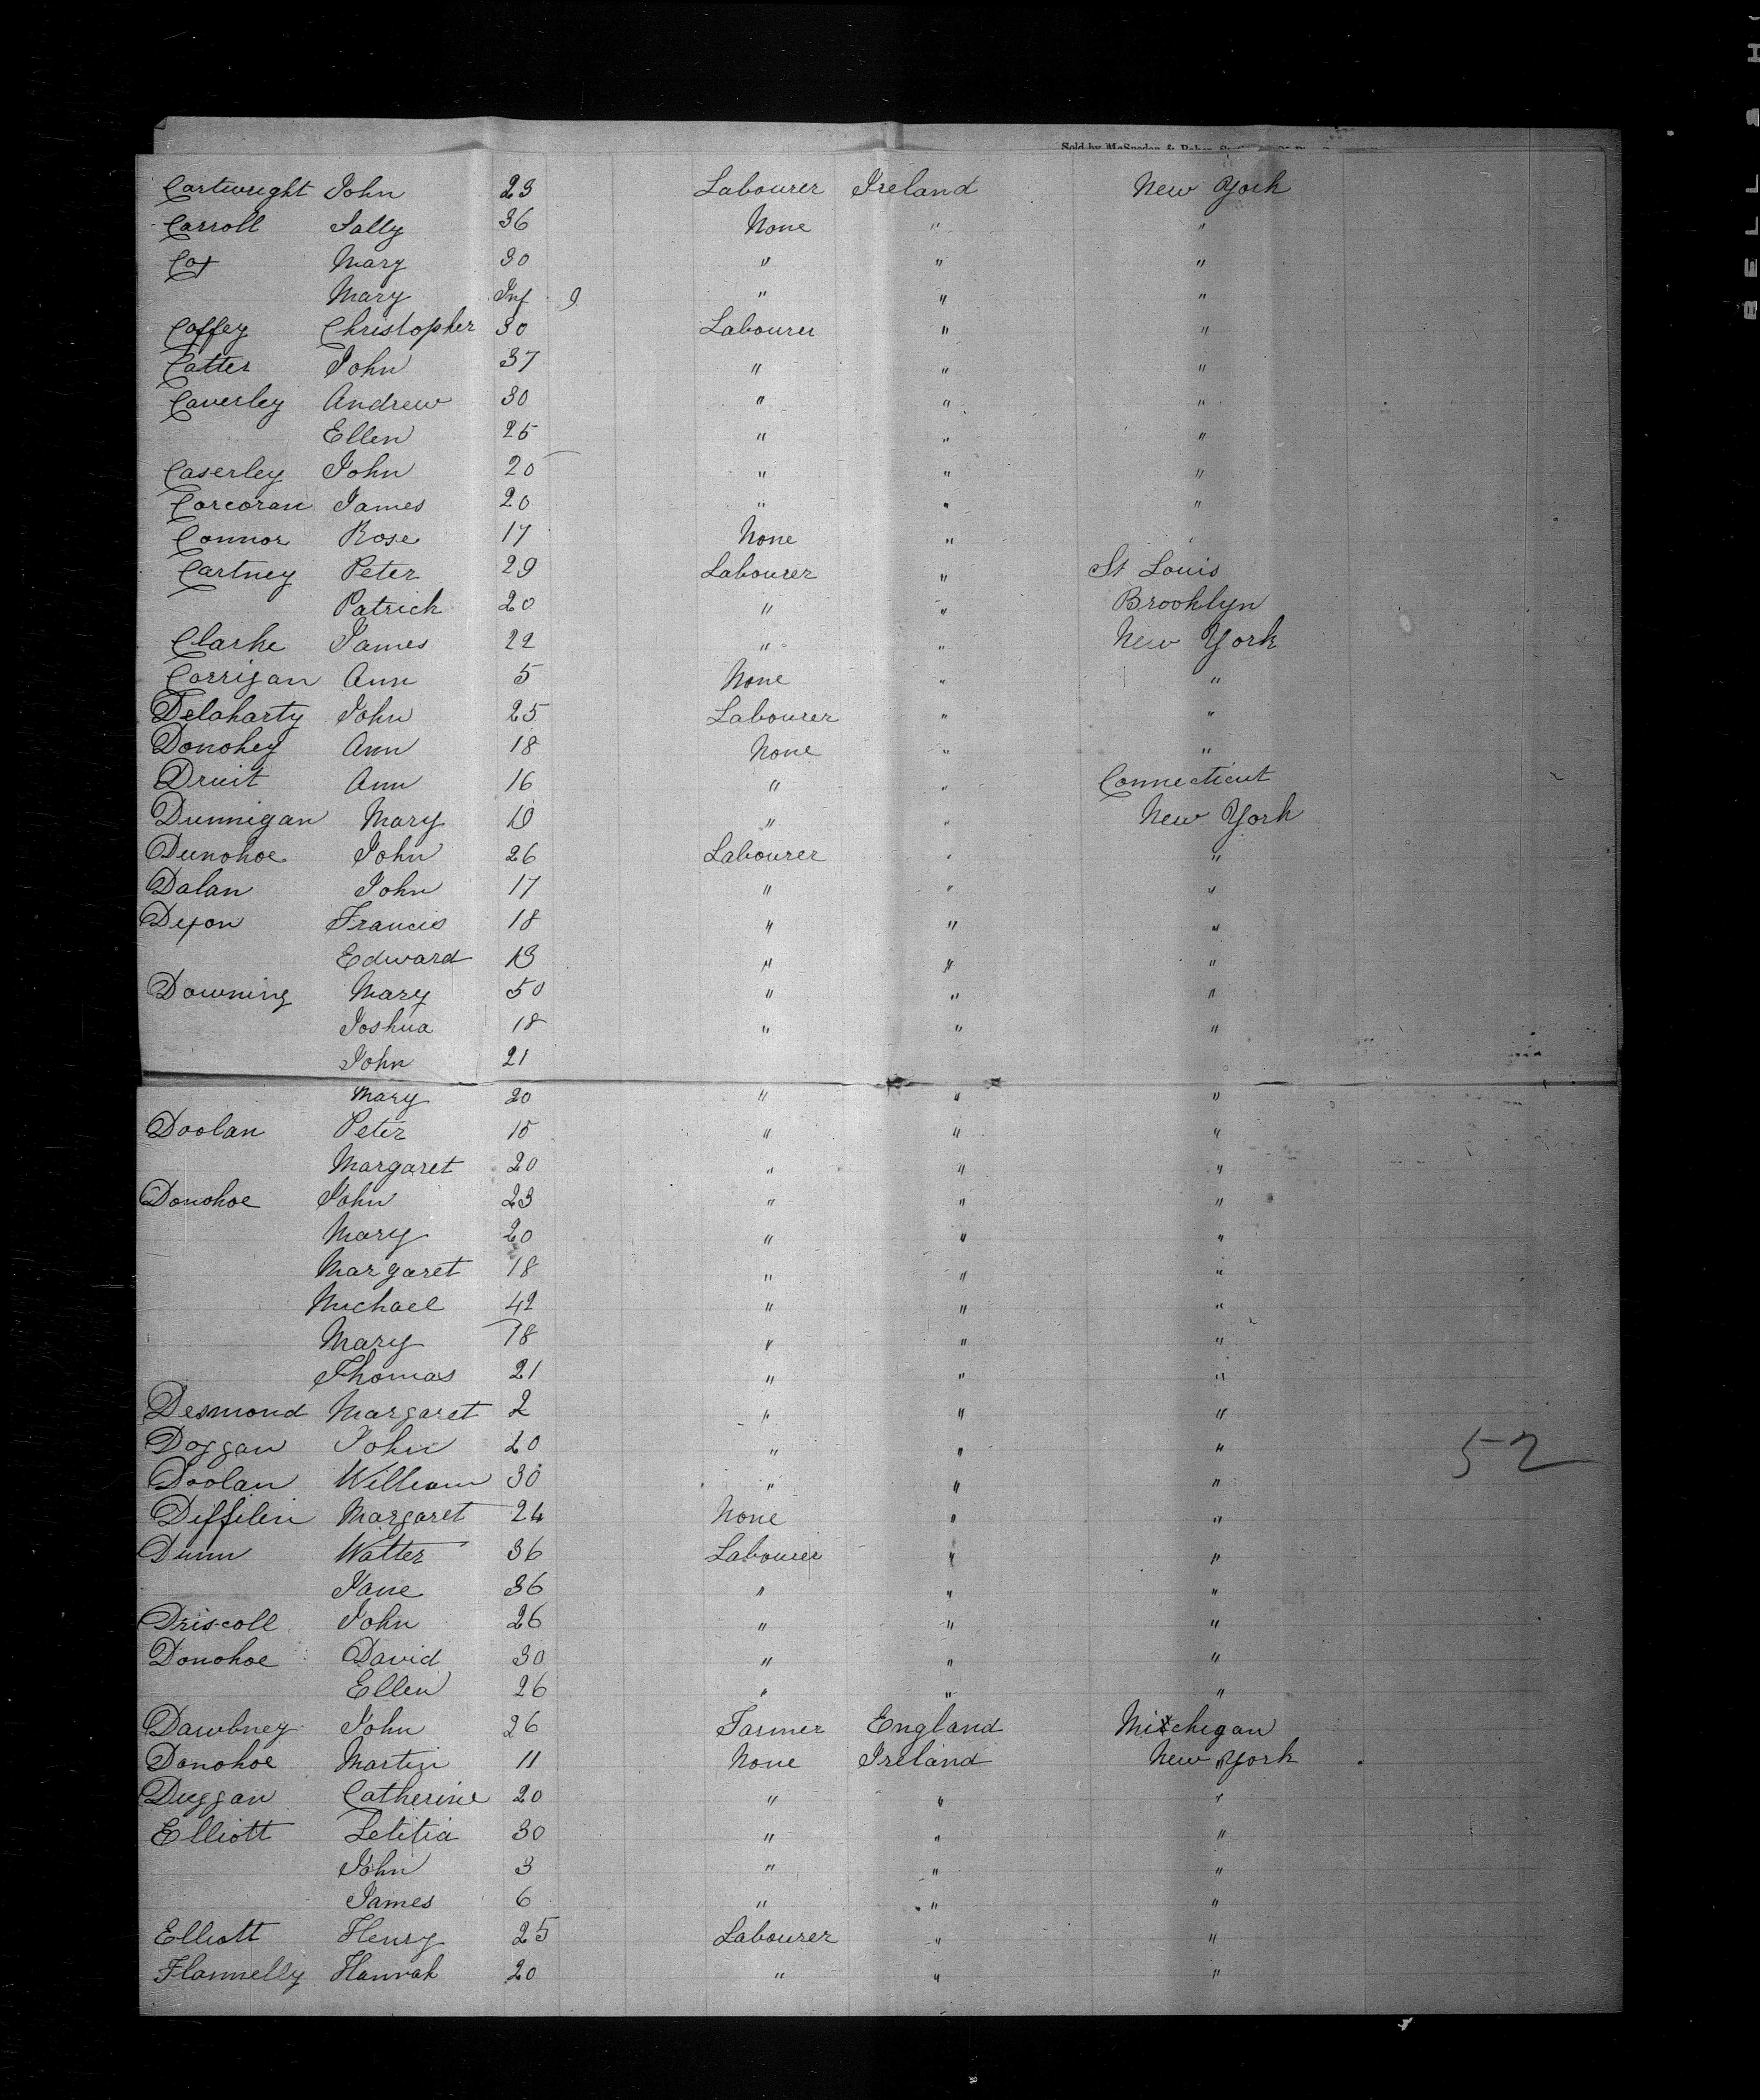 Sold by McSpedon & Baker
Cartwright John 23 Labourer Ireland New York
Carroll Sally 36 None " "
Cox Mary 30 " " "
Mary Inf 9 " " "
Caffey Christopher 30 Labourer " "
Catter John 37 " " "
Caverley Andrew 30 " " "
Ellen 25 " " "
Caserley John 20 " " "
Corcoran James 20 " " "
Connor Rose 17 None " "
Cartney Peter 29 Labourer " St Louis
Patrick 20 " " Brooklyn
Clarke James 22 " " New York
Corrigan Ann 5 None " "
Delaharty John 25 Labourer " "
Donohey Ann 18 None " "
Druit Ann 16 " " Connecticut
Dunnigan Mary " " New York
Dunohoe John 26 Labourer " "
Dalan John 17 " " "
Dixon Francis 18 " " "
Edward 13 " " "
Downing Mary 50 " " "
Joshua 18 " " "
John 21
Mary 20 " " "
Doolan Peter 15 " " "
Margaret 20 " " "
Donohoe John 23 " " "
Mary 20 " " "
Margaret 18 " " "
Michael 42 " " "
Mary 18 " " "
Thomas 21 " " "
Desmond Margaret 2 " " "
Doggan John 20 " " "
52
Doolan William 30 " " "
Diffilin Margaret 24 None " "
Dunn Walter 36 Labourer " "
Jane 36 " " "
Driscoll John 26 " " "
Donohoe David 30 " " "
Ellen 26 " " "
Dawbney John 26 Farmer England Michigan
Donohoe Martin 11 None Ireland New York
Duggan Catherine 20 " " "
Elliott Letitia 30 " " "
John 3 " " "
James 6 " " "
Elliott Henry 25 Labourer " "
Flannelly Hannah 20 " " "
BELL & H